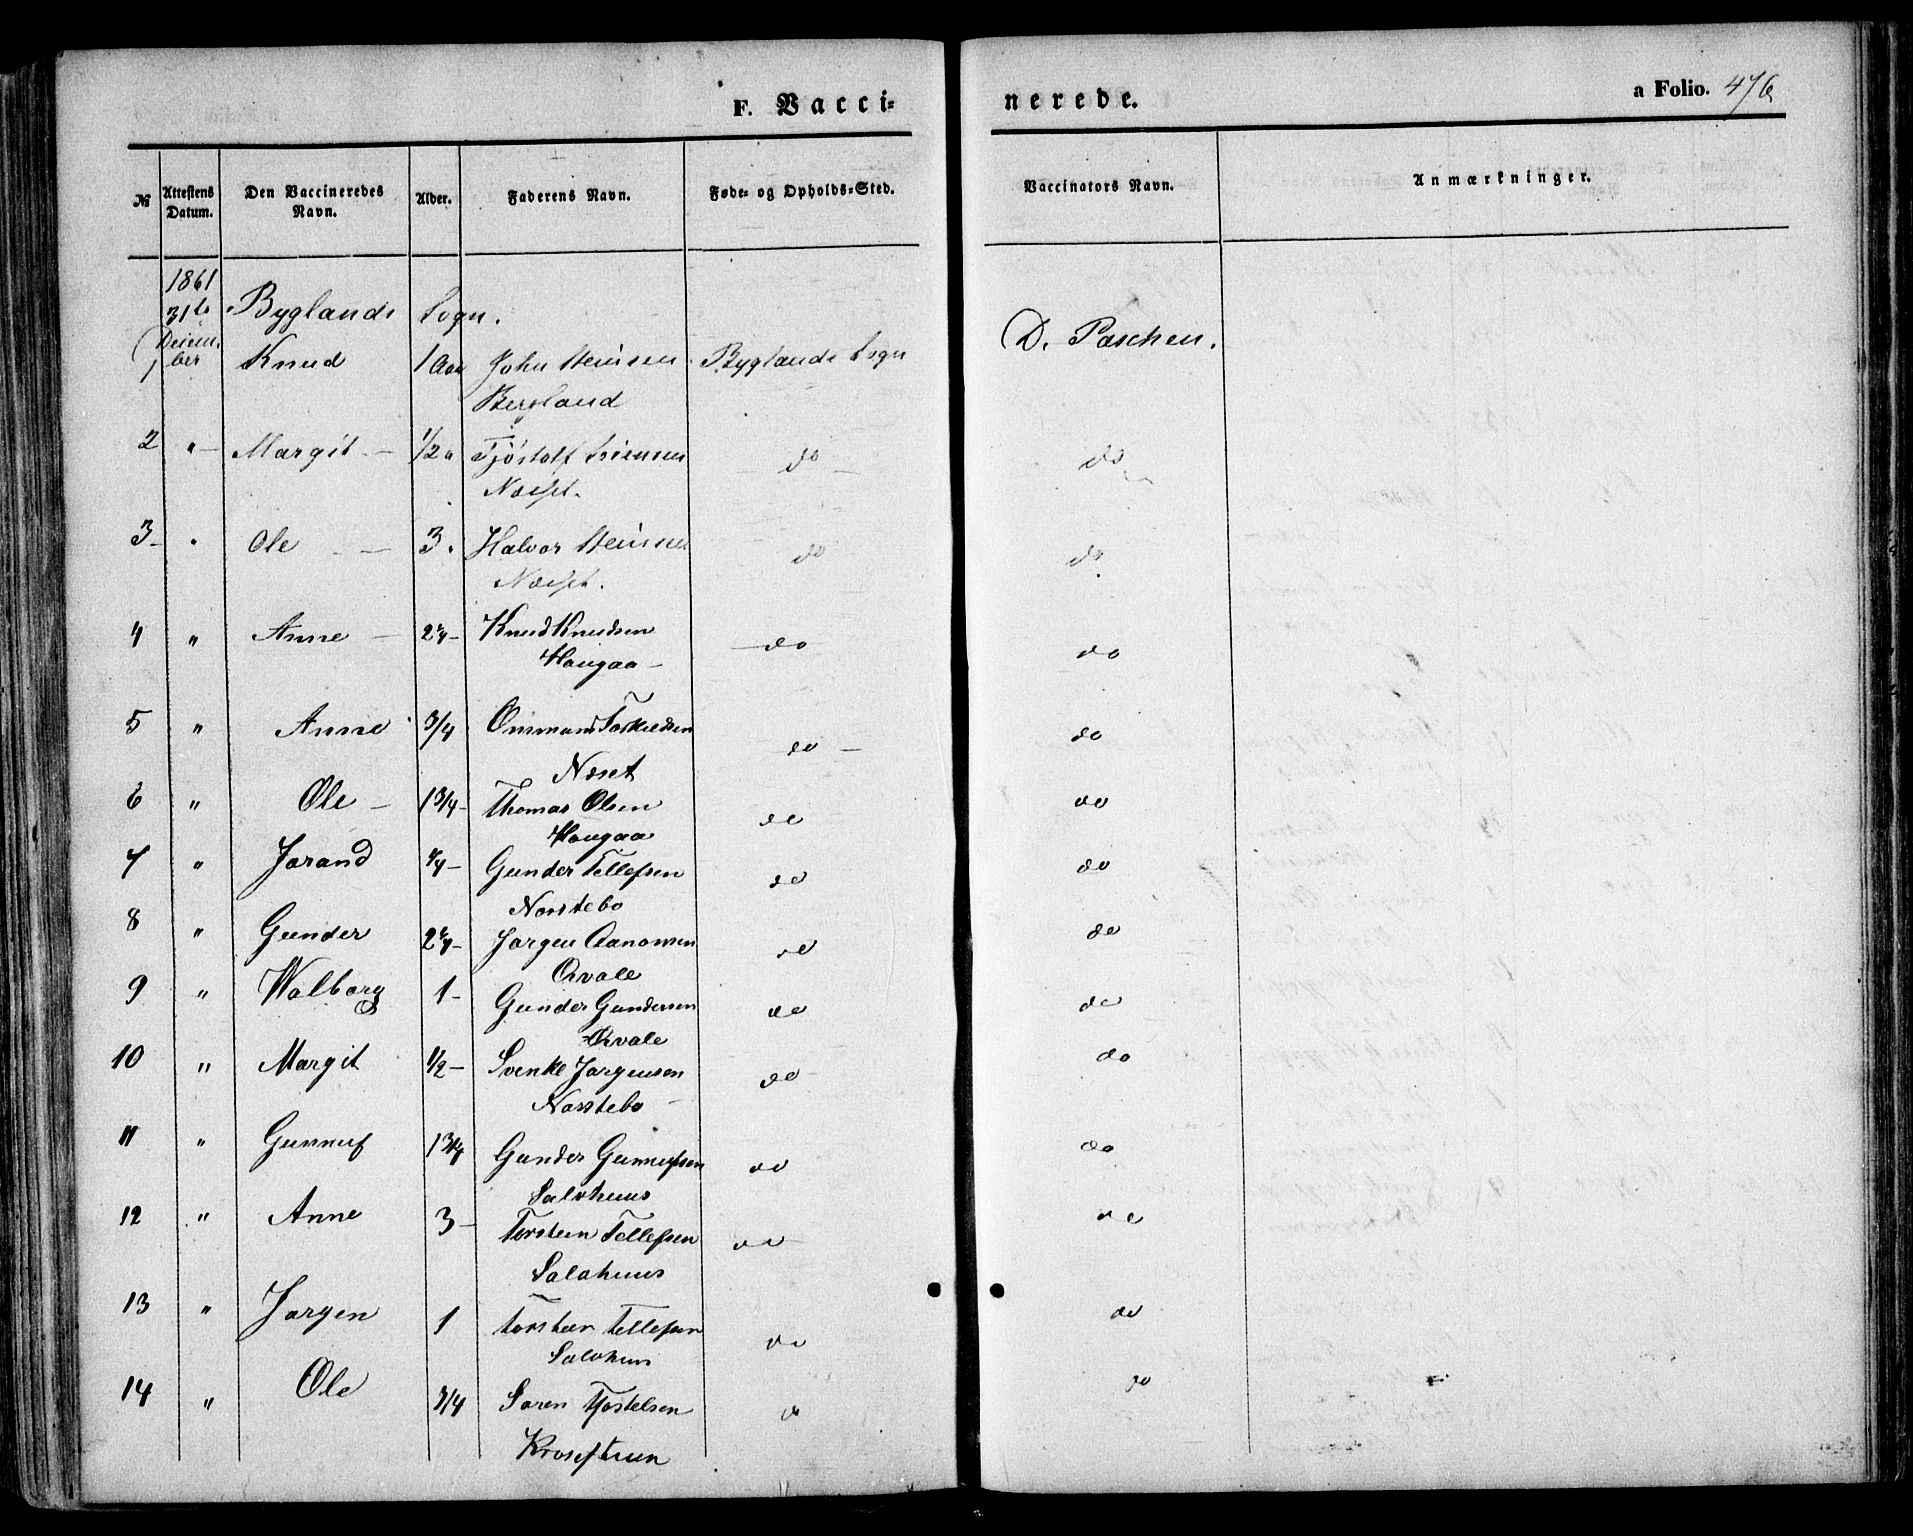 F. Vacci-
nerede.
a Folio. 476
№ Attestens Datum. Den Vaccineredes Navn. Alder. Faderens Navn. Føde- og Opholds-Sted. Vaccinators Navn. Anmærkninger.
1861
31te Byglands Sogn.
Decem-
1 ber Knud 1 Aar John Byglands Sogn D. Paschen.
Bergland
2 " – Margit – 1/2 " Tjöstolf do – do
Næsset.
3 – " Ole – – 3 " Halvor do do
Næsset.
4 " Anne – Knud Knudsen – do do
Haugaa –
5 " Anne 3/4 Omund Torkildsen do – do
Næset
6 " Ole – 1 3/4 – Thomas Olsen do do
Haugaa
7 " Jorand Gunder Tellefsen do do
Norstebo
8 " Gunder Jørgen Aanonsen do do
Ovale
9 " Walborg 1 – Gunder Gundersen do do
Ovale
10 " Margit 1/2 – Svenke Jørgensen do do
Norstebo –
11 " Gunnuf 1 3/4 Gunder Gunnufsen do do
Salohuus
12 " Anne 3 – Torsten Tellefsen do – do
Salohuus
13 " Jørgen 1 Torsten Tellefsen do do
Salohuus
14 " Ole 3/4 Søren Tjostelsen do do